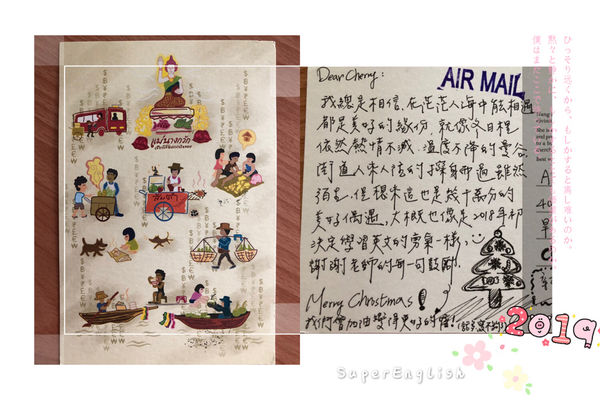 แม่นางกวัก
ส้มตำ
Dear Cherry:
AIR MAIL
我總是相信,在茫茫人海中能相遇
都是美好的緣份,就像冬日裡
依然熱情不減、溫度不降的曼谷,
街道人來人往的擦身而過雖然
須臾,但想來這也是幾十萬分的
美好偶遇,大概也像是2018年初
決定學習英文的勇氣一樣,
謝謝老師的每一句鼓勵.
Merry Christmas!
我們會加油變得更好的唷!
ひっそり遠くから、もしかすると測し難いのか、
2019
SuperEnglish